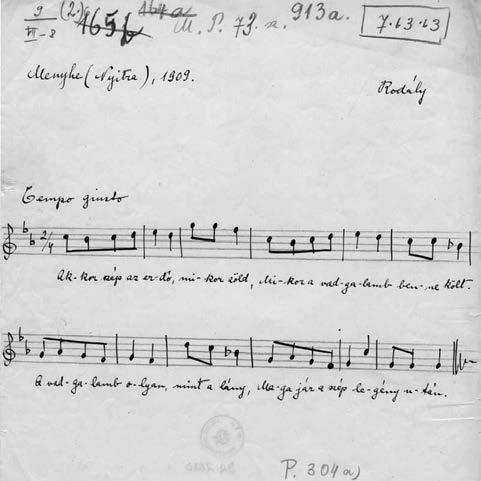 9 (2.) 465b 464a M. P. 73. a. 913a. 7.63.63
VI-8
Menyhe (Nyitra), 1909. Rodály
Tempo giusto
2/4
Ak-kor szép az er-dő, mi-kor zöld, Mi-kor a vad-ga-lamb ben-ne költ.
A vad-ga-lamb o-lyan, mint a lány, Ma-ga jár a szép le-gény u-tán.
P. 304a)